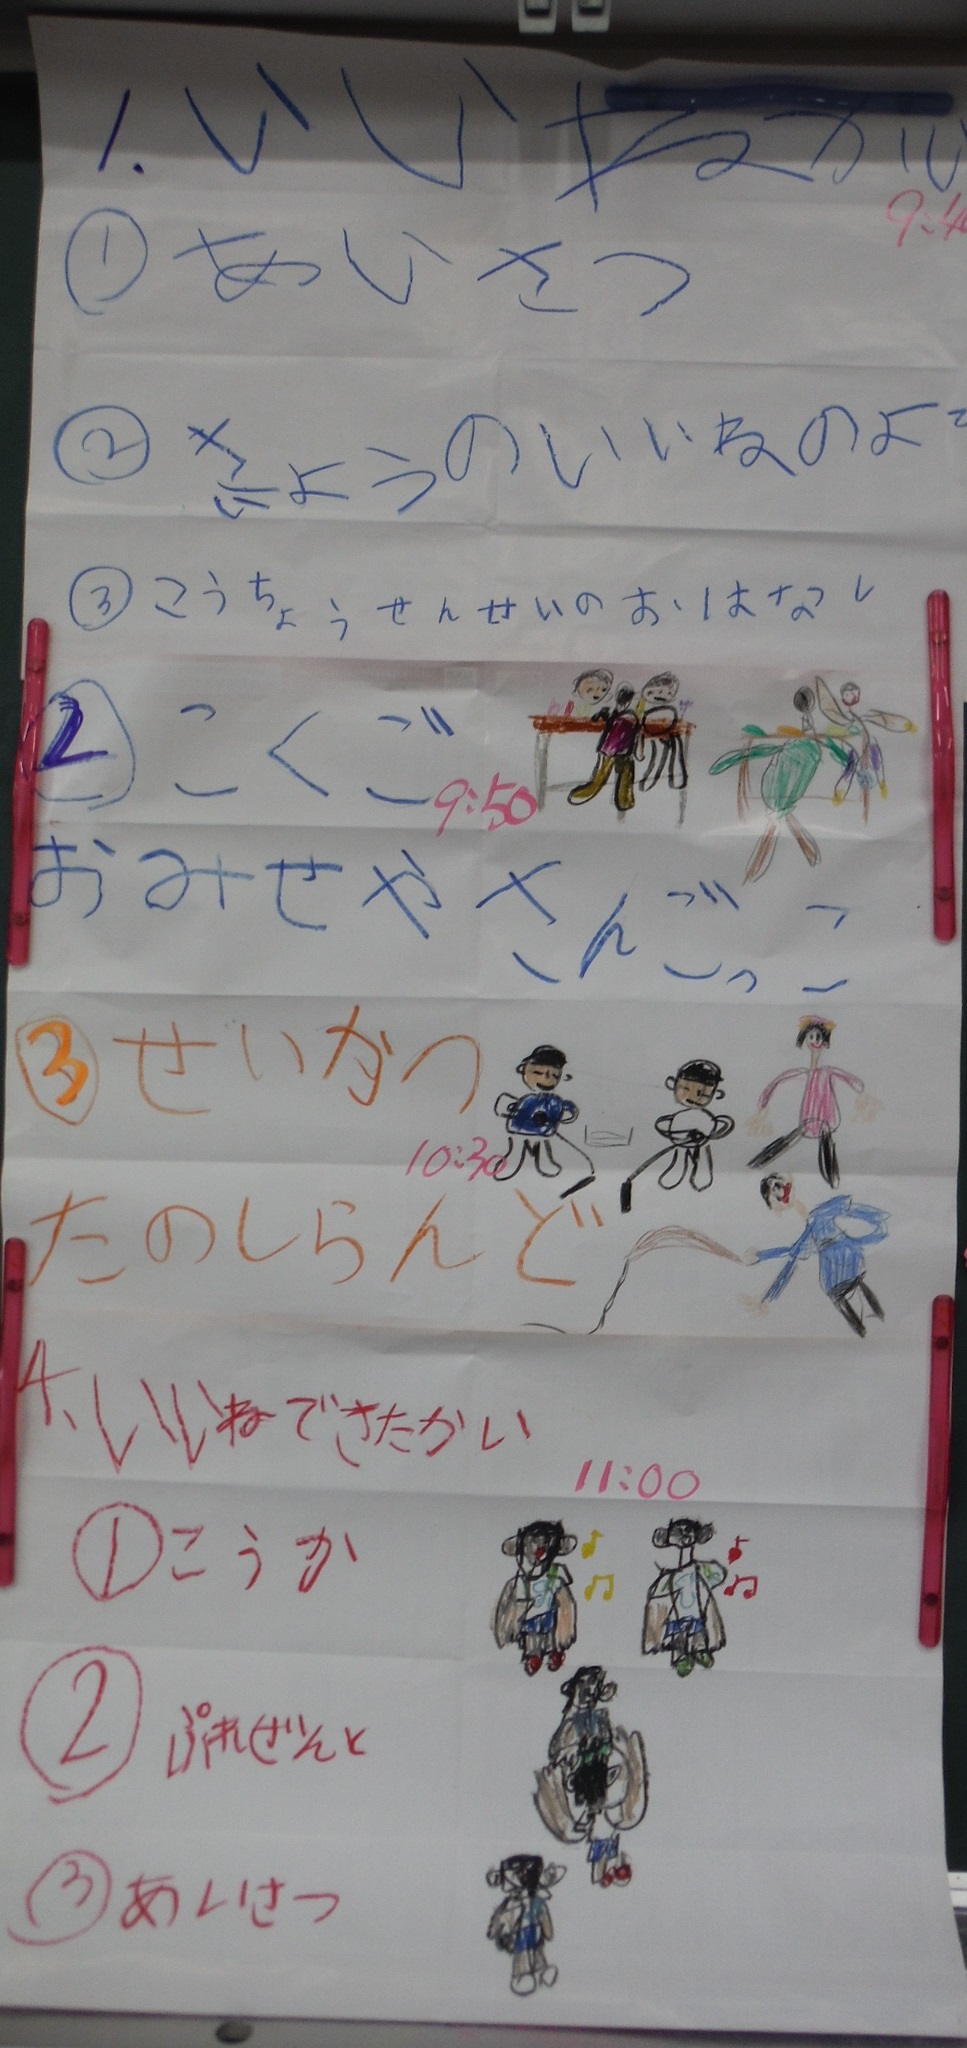 1. いいねかい
9:4
① あいさつ
② きょうのいいねのよ
③ こうちょうせんせいのおはなし
2 こくご
9:50
おみせやさんごっこ
3 せいかつ
10:30
たのしらんど
4. いいねできたかい
11:00
① こうか
② ぷれぜんと
③ あいさつ